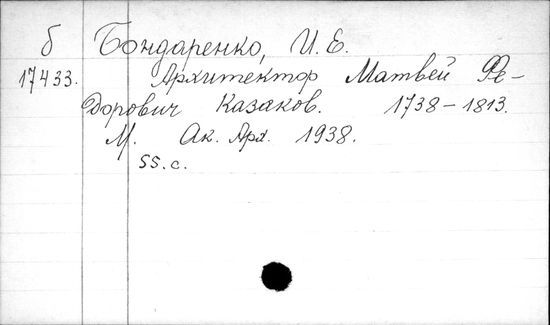 б Бондаренко, И.Е.
17433. Архитектор Матвей Фе-
доровичъ Казаков. 1738-1813.
М. Ак. Арх. 1938.
55.с.